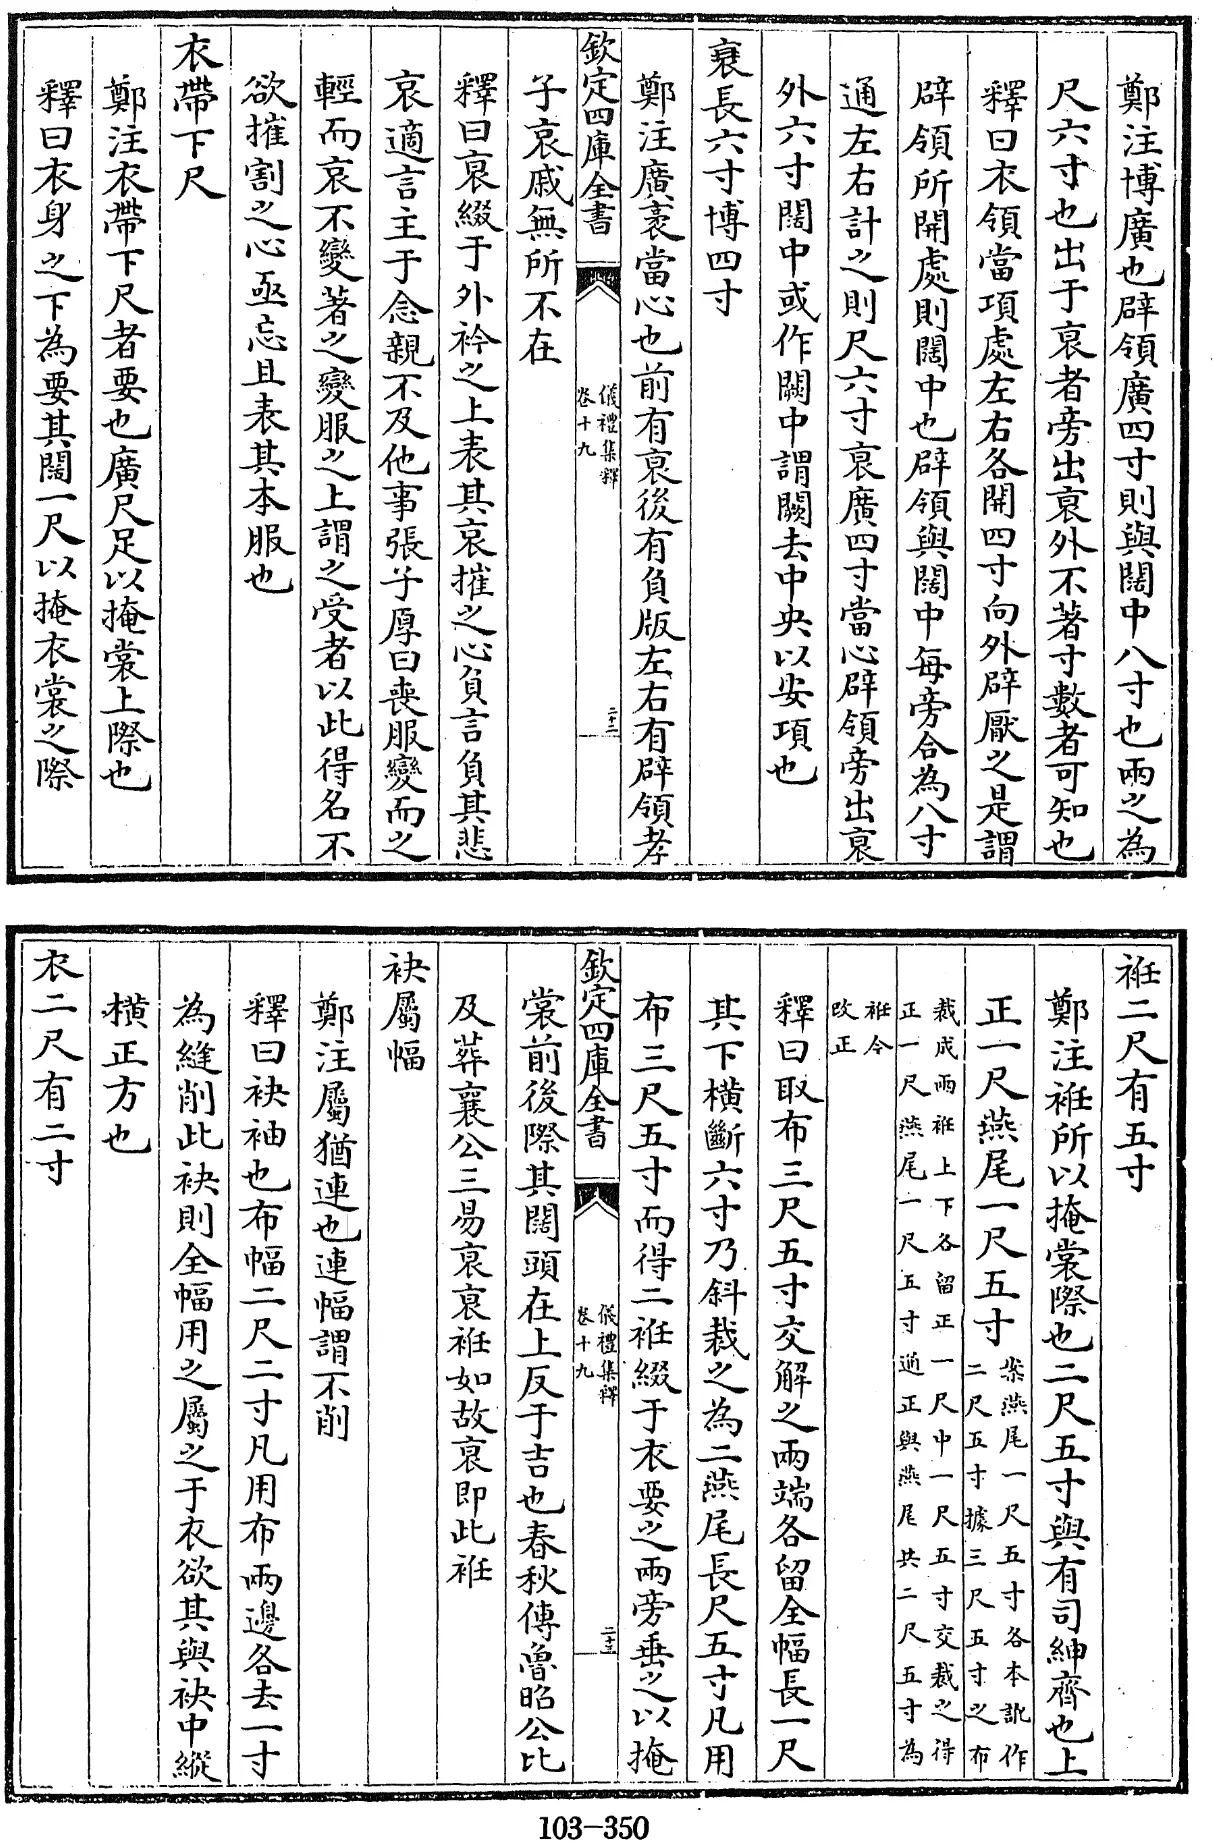 鄭注博廣也辟領廣四寸則與闊中八寸也兩之為
尺六寸也出于衰者旁出衰外不著寸數者可知也
釋曰衣領當項處左右各開四寸向外辟厭之是謂
辟領所開處則闊中也辟領與闊中每旁合為八寸
通左右計之則尺六寸衰廣四寸當心辟領旁出衰
外六寸闊中或作闕中謂闕去中央以安項也
衰長六寸博四寸
鄭注廣袤當心也前有衰後有負版左右有辟領孝
欽定四庫全書
儀禮集釋
卷十九
二十二
子哀戚無所不在
釋曰衰綴于外衿之上表其哀摧之心負言負其悲
哀適言主于念親不及他事張子厚曰喪服變而之
輕而哀不變著之變服之上謂之受者以此得名不
欲摧割之心亟忘且表其本服也
衣帶下尺
鄭注衣帶下尺者要也廣尺足以掩裳上際也
釋曰衣身之下為要其闊一尺以掩衣裳之際
衽二尺有五寸
鄭注衽所以掩裳際也二尺五寸與有司紳齊也上
正一尺燕尾一尺五寸案燕尾一尺五寸各本訛作
二尺五寸據三尺五寸之布
裁成兩衽上下各留正一尺中一尺五寸交裁之得
正一尺燕尾一尺五寸通正與燕尾共二尺五寸為
衽今
改正
釋曰取布三尺五寸交解之兩端各留全幅長一尺
其下橫斷六寸乃斜裁之為二燕尾長尺五寸凡用
布三尺五寸而得二衽綴于衣要之兩旁垂之以掩
欽定四庫全書
儀禮集釋
卷十九
二十三
裳前後際其闊頭在上反于吉也春秋傳魯昭公比
及葬襄公三易衰衰衽如故衰即此衽
袂屬幅
鄭注屬猶連也連幅謂不削
釋曰袂袖也布幅二尺二寸凡用布兩邊各去一寸
為縫削此袂則全幅用之屬之于衣欲其與袂中縱
橫正方也
衣二尺有二寸
103-350